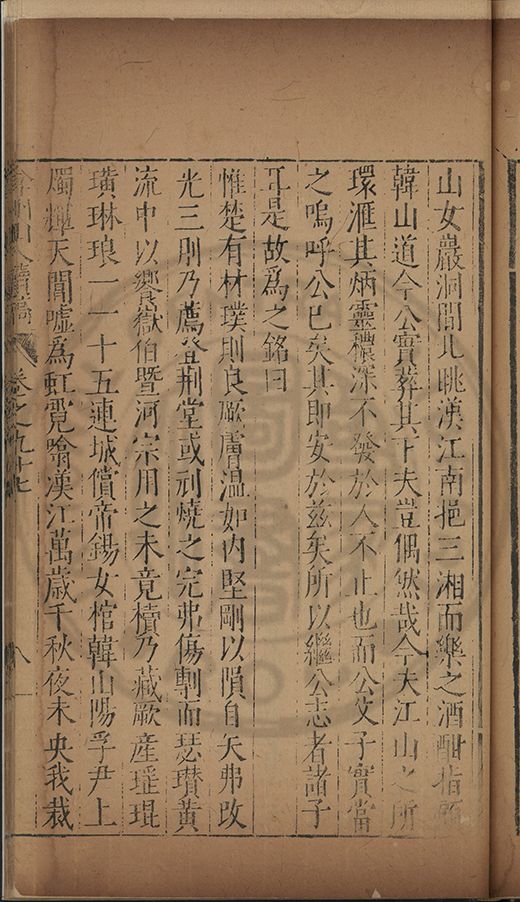 山女巖洞間北眺漢江南挹三湘而樂之酒酣指顧
韓山道今公實葬其下夫豈偶然哉今夫江山之所
環滙其炳靈穠深不發於人不止也而公父子實當
之嗚呼公已矣其即安於茲矣所以繼公志者諸子
耳是故爲之銘曰
惟楚有材璞則良厥膚温如内堅剛以隕自天弗改
光三刖乃薦登荆堂或刓燒之完弗傷剸而瑟瓚黄
流中以饗嶽伯暨河宗用之未竟櫝乃藏厥産瑶琨
璜琳琅一一十五連城償帝錫女棺韓山陽孚尹上
燭輝天閶噓爲虹霓噏漢江萬歲千秋夜未央我裁
弇州山人續稿 卷之九十七 八